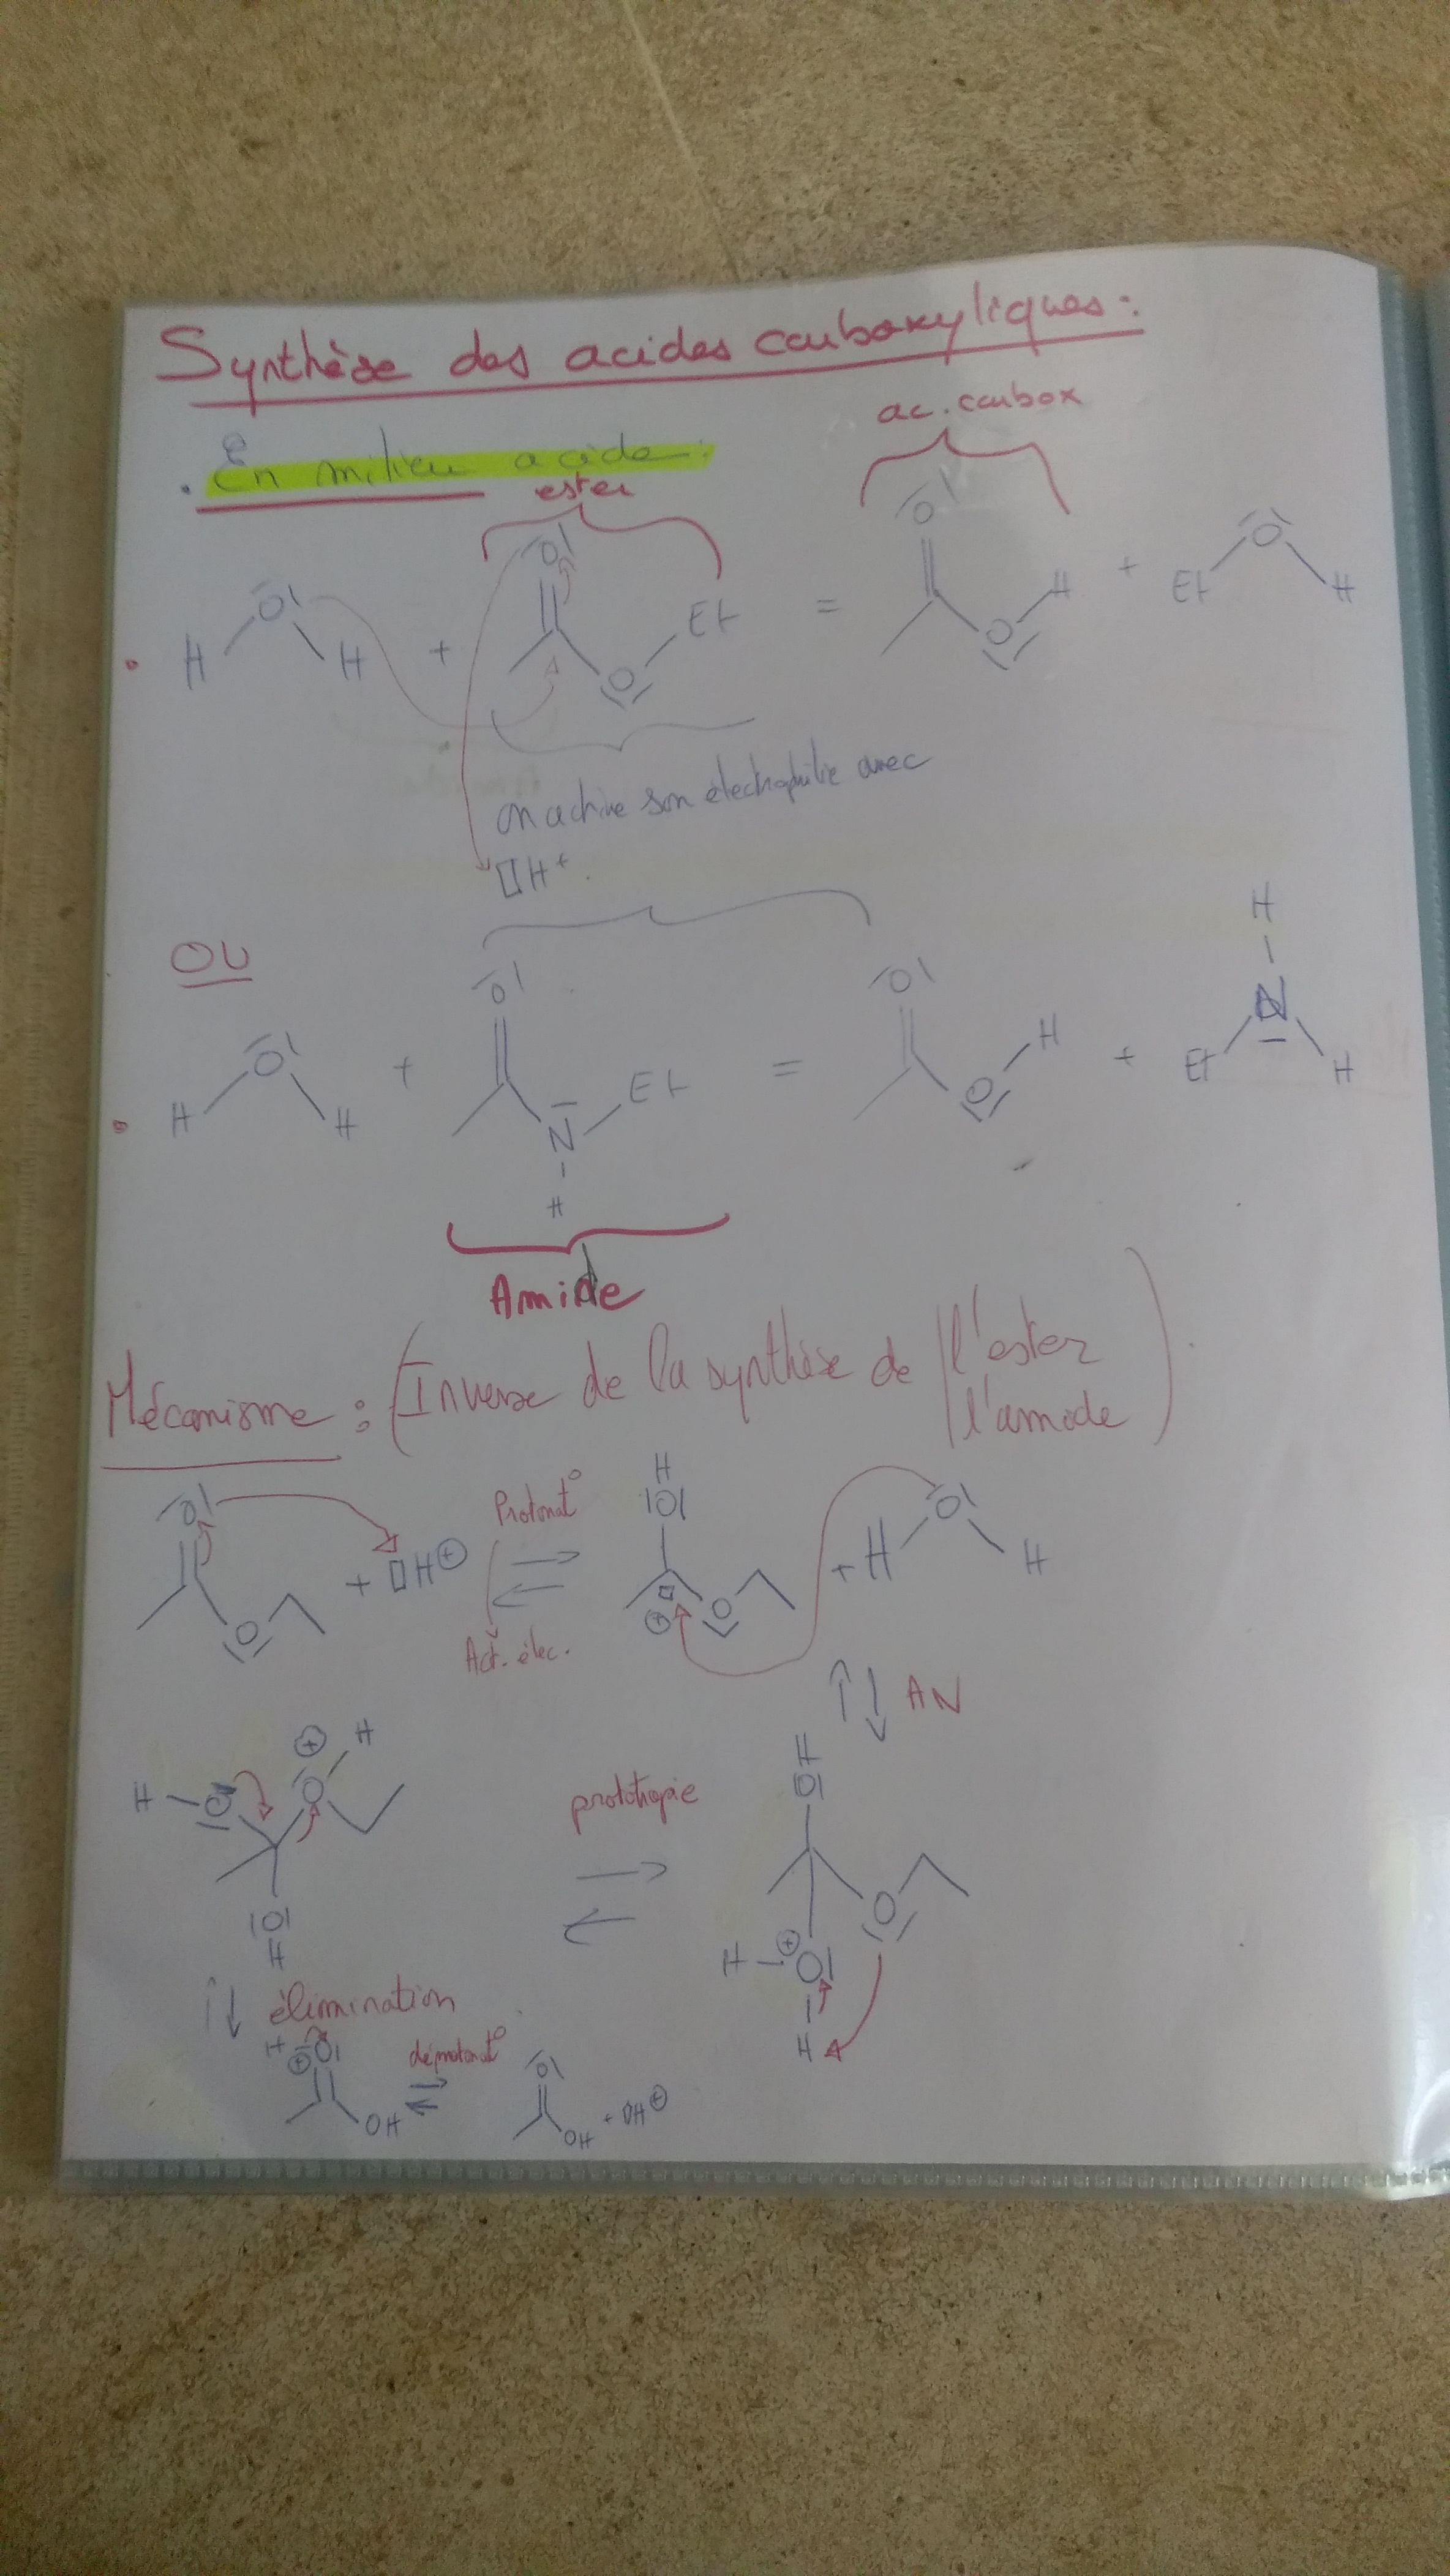 Synthèse des acides carboxyliques :
. En milieu acide :
ester
ac. carbox
H O H + O O Et = O O H + Et O H
on active son électrophilie avec
▯H+.
OU
H O H + O N Et H = O O H + Et N H H
Amide
Mécanisme : (Inverse de la synthèse de l'ester
l'amide)
O O + ▯H⊕ Protonat° H O ⊕ O + H O H
Act. élec.
AN
H O ⊕ O H O H
prototropie
H O H ⊕ O H O
élimination
H ⊕ O OH déprotonat° O OH + ▯H⊕